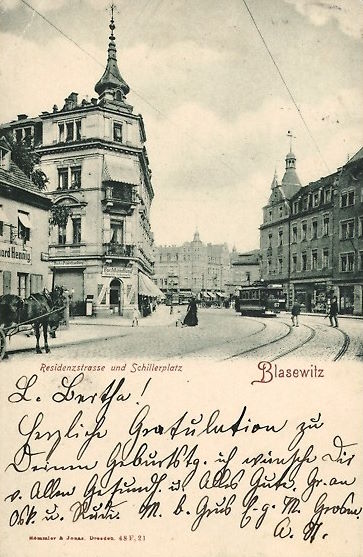 nard Hennig
Residenzstrasse und Schillerplatz
Blasewitz
L. Bertha!
Herzliche Gratulation zu
Deinem Geburtstg. ich wünsche Dir
v. Allen Gesundh. u. Alles Gute. Gr. an
Osk. u. Rud. M. b. Grus E. g. M. Groben
A. H.
Hommler & Jonas, Dresden. 48 F. 21